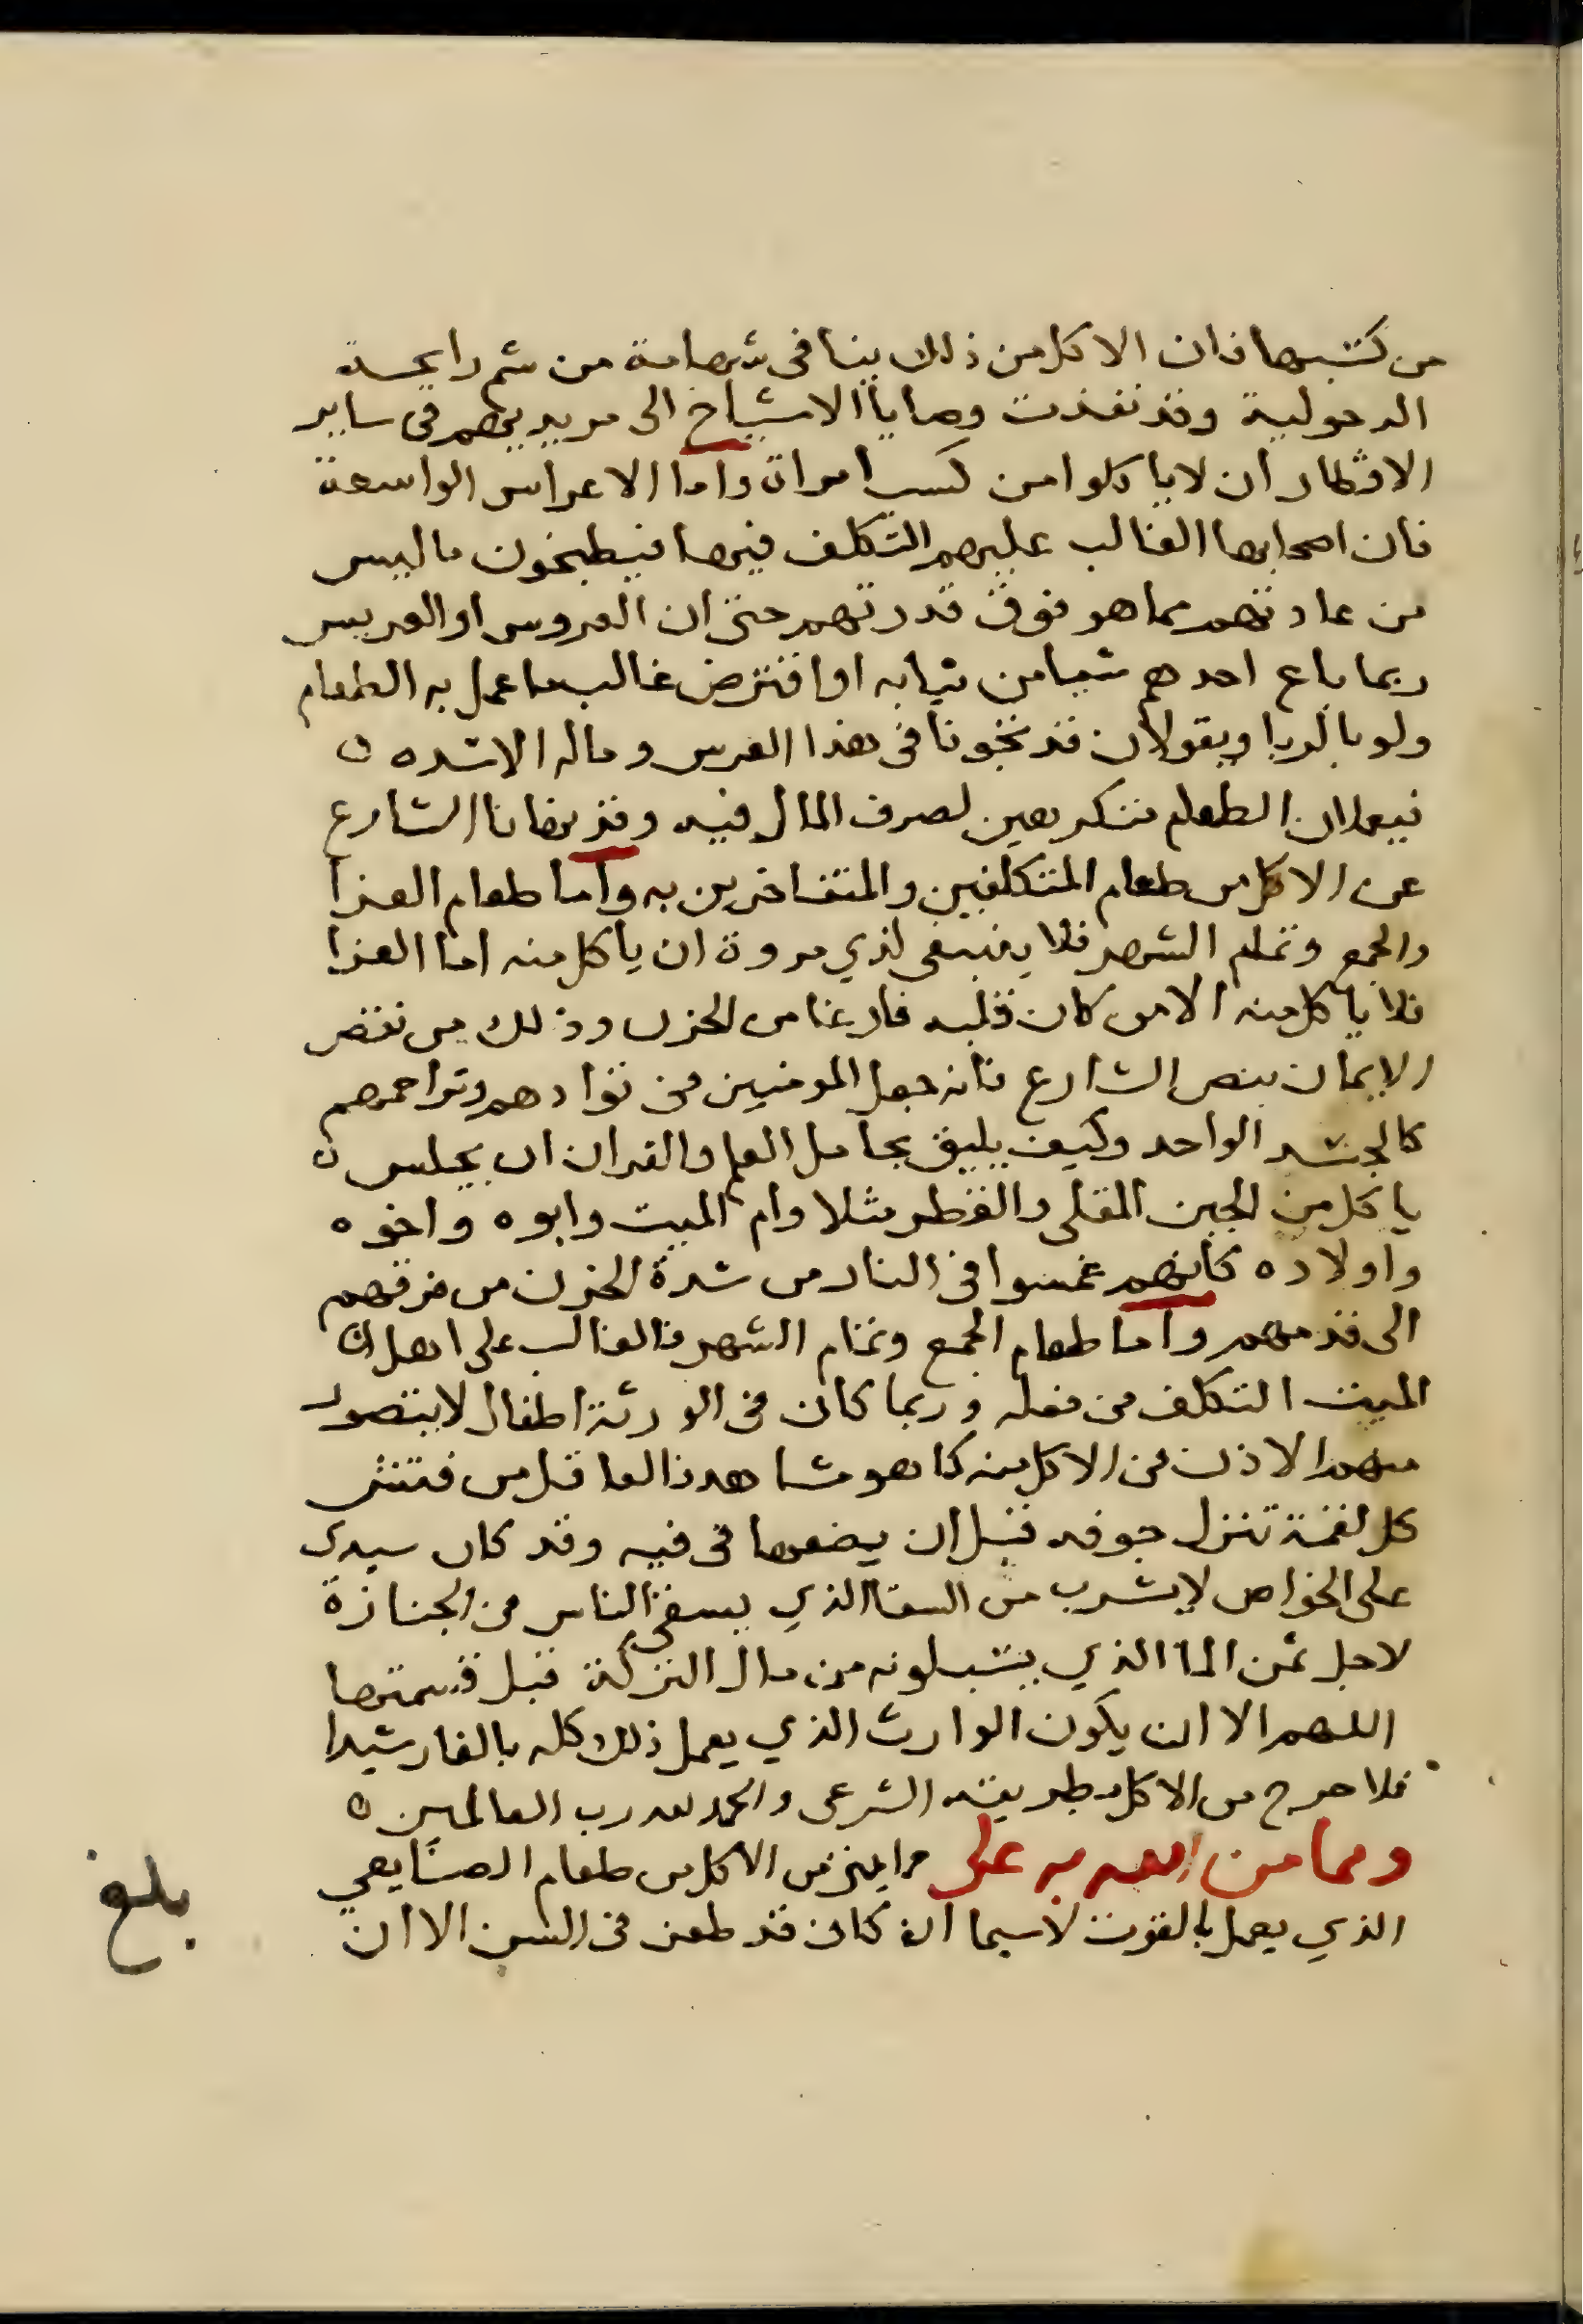 من كسبها فان الاكل من ذلك ينافى شهامة من شم رايحة
الرجولية وقد نفذت وصايا الاشياخ الى مريديهم فى ساير
الاقطار ان لا ياكلوا من كسب امراة واما الاعراس الواسعة
فان اصحابها الغالب عليهم التكلف فيها فيطبخون ما ليس
من عادتهم مما هو فوق قدرتهم حتى ان العروس او العريس
ربما باع احدهم شيا من ثيابه او اقترض غالب ما عمل به الطعام
ولو بالربا ويقولان قد نخونا فى هذا العرس وماله الا شده
فيعملان الطعام متكرهين لصرف المال فيه وقد نهانا الشارع
عن الاكل من طعام المتكلفين والمتفاخرين به واما طعام العزا
والجمع وتمام الشهر فلا ينبغى لذي مروة ان ياكل منه اما العزا
فلا ياكل منه الا من كان قلبه فارغا من الحزن وذلك من نقص
الايمان بنص الشارع فانه جعل المومنين فى توادهم وتراحمهم
كالجسد الواحد وكيف يليق بحامل العلم والقران ان يجلس
ياكل من الجبن المقلى والفطر مثلا وام الميت وابوه واخوه
واولاده كانهم غمسوا فى النار من شدة الحزن من فرقهم
الى قدمهم واما طعام الجمع وتمام الشهر فالغالب على اهل
الميت التكلف فى فعله وربما كان فى الورثة اطفال لا يتصور
منهم الاذن فى الاكل منه كما هو مشاهد فالعاقل من فتش
كل لقمة تنزل جوفه قبل ان يضعها فى فيه وقد كان سيدى
على الخواص لا يشرب من السقا الذي يسقى الناس فى الجنازة
لاجل ثمن الما الذي يسبلونه من مال التركة قبل قسمتها
اللهم الا ان يكون الوارث الذي يعمل ذلك كله بالغا رشيدا
فلا حرج فى الاكل بطريقه الشرعى والحمد لله رب العالمين
ومما من الله به على حمايتى من الاكل من طعام الصنايعي
الذي يعمل بالقوت لا سيما ان كان قد طعن فى السن الا ان
بلغ